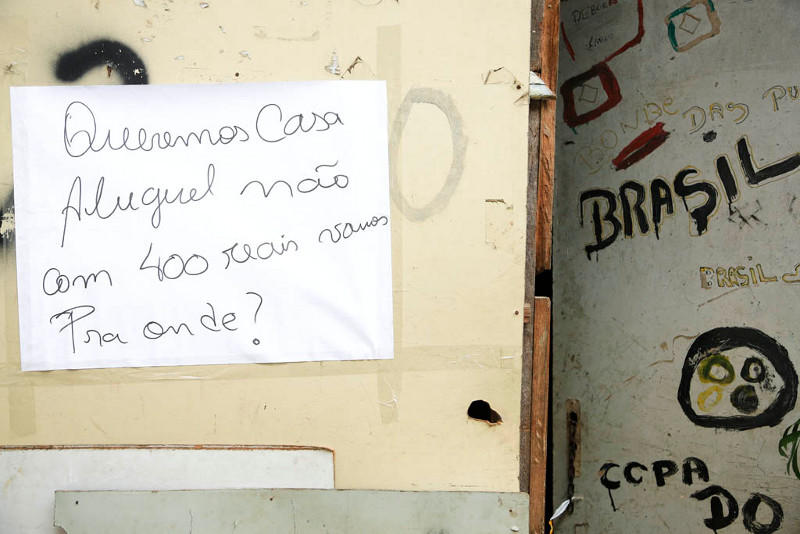 Queremos Casa
Aluguel não
com 400 reais vamos
Pra onde?
BONDE DAS
BRASIL
BRASIL
COPA
DO